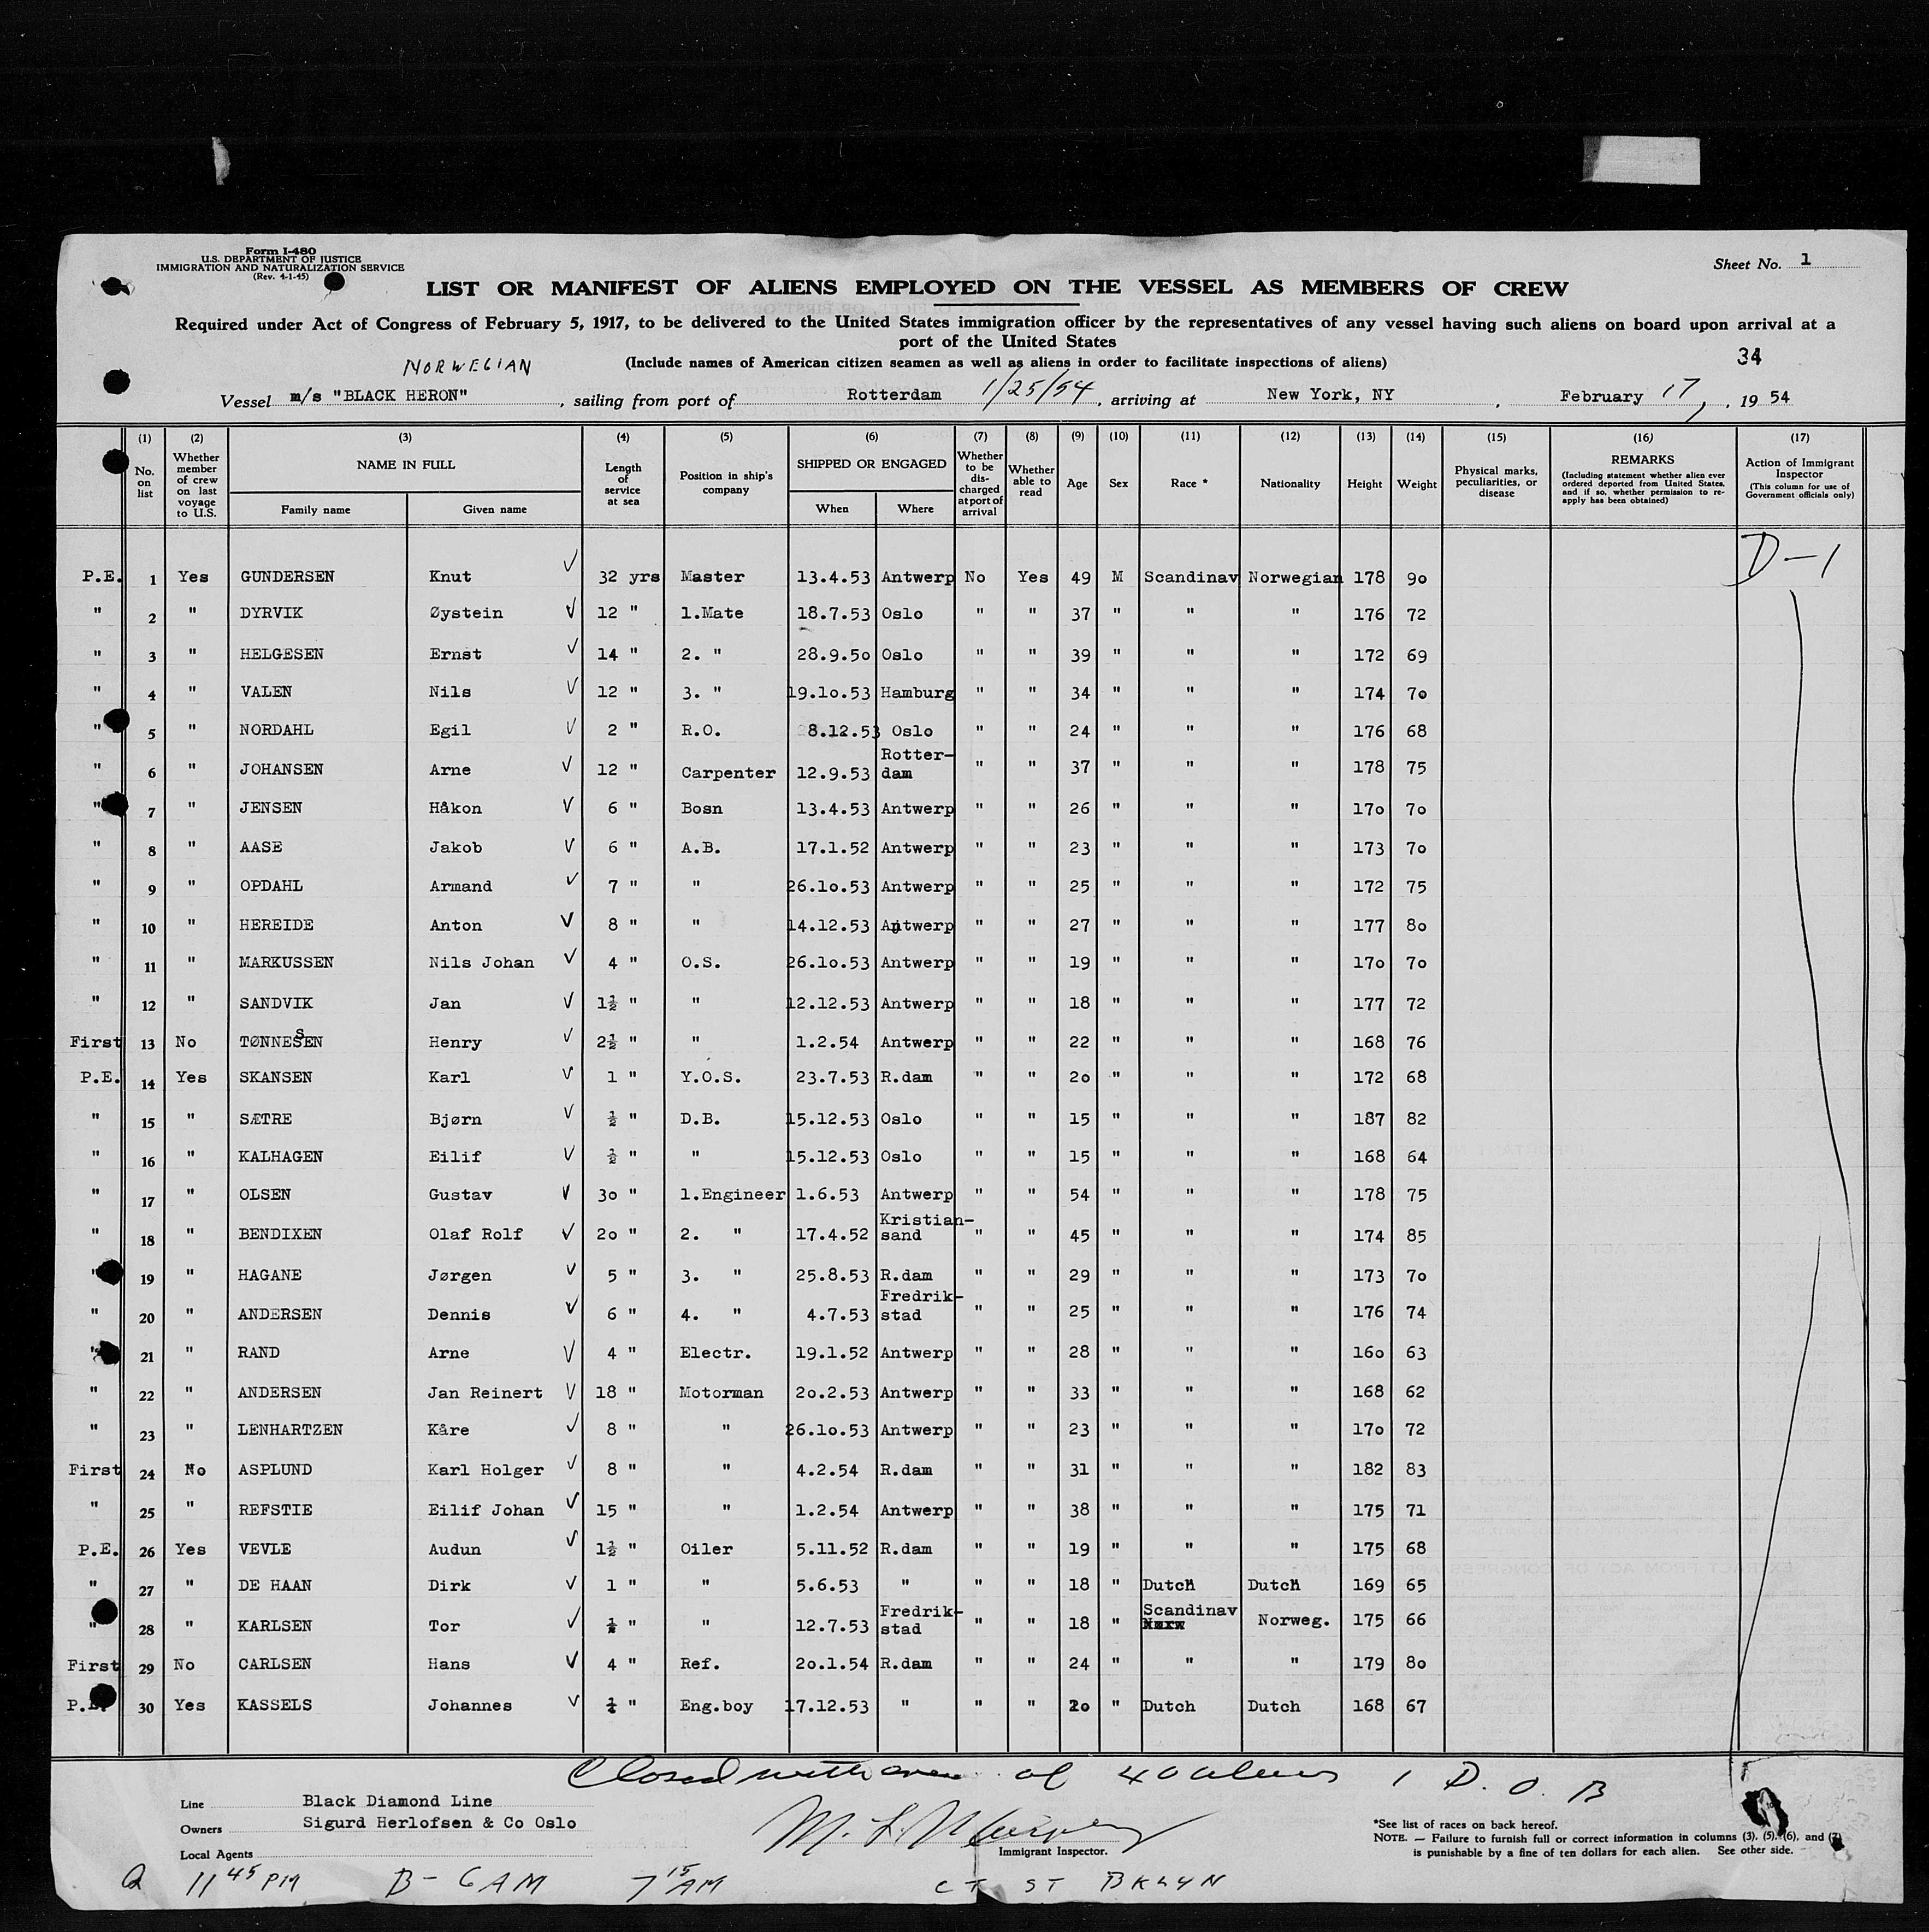 Form I-480
U.S. DEPARTMENT OF JUSTICE
IMMIGRATION AND NATURALIZATION SERVICE
(Rev. 4-1-45)
Sheet No. 1
LIST OR MANIFEST OF ALIENS EMPLOYED ON THE VESSEL AS MEMBERS OF CREW
Required under Act of Congress of February 5, 1917, to be delivered to the United States immigration officer by the representatives of any vessel having such aliens on board upon arrival at a
port of the United States
(Include names of American citizen seamen as well as aliens in order to facilitate inspections of aliens)
34
NORWEGIAN
Vessel m/s "BLACK HERON", sailing from port of Rotterdam 1/25/54, arriving at New York, NY, February 17, 1954
(1) (2) (3) (4) (5) (6) (7) (8) (9) (10) (11) (12) (13) (14) (15) (16) (17)
No. on list
Whether member of crew on last voyage to U.S.
NAME IN FULL
Family name
Given name
Length of service at sea
Position in ship's company
SHIPPED OR ENGAGED
When
Where
Whether to be discharged at port of arrival
Whether able to read
Age
Sex
Race *
Nationality
Height
Weight
Physical marks, peculiarities, or disease
REMARKS
(Including statement whether alien ever ordered deported from United States, and if so, whether permission to reapply has been obtained)
Action of Immigrant Inspector
(This column for use of Government officials only)
D-1
P.E. 1 Yes GUNDERSEN Knut ✓ 32 yrs Master 13.4.53 Antwerp No Yes 49 M Scandinav Norwegian 178 90
" 2 " DYRVIK Øystein ✓ 12 " 1.Mate 18.7.53 Oslo " " 37 " " " 176 72
" 3 " HELGESEN Ernst ✓ 14 " 2. " 28.9.50 Oslo " " 39 " " " 172 69
" 4 " VALEN Nils ✓ 12 " 3. " 19.10.53 Hamburg " " 34 " " " 174 70
" 5 " NORDAHL Egil ✓ 2 " R.O. 8.12.53 Oslo " " 24 " " " 176 68
" 6 " JOHANSEN Arne ✓ 12 " Carpenter 12.9.53 Rotter-dam " " 37 " " " 178 75
" 7 " JENSEN Håkon ✓ 6 " Bosn 13.4.53 Antwerp " " 26 " " " 170 70
" 8 " AASE Jakob ✓ 6 " A.B. 17.1.52 Antwerp " " 23 " " " 173 70
" 9 " OPDAHL Armand ✓ 7 " " 26.10.53 Antwerp " " 25 " " " 172 75
" 10 " HEREIDE Anton ✓ 8 " " 14.12.53 Antwerp " " 27 " " " 177 80
" 11 " MARKUSSEN Nils Johan ✓ 4 " O.S. 26.10.53 Antwerp " " 19 " " " 170 70
" 12 " SANDVIK Jan ✓ 1½ " " 12.12.53 Antwerp " " 18 " " " 177 72
First 13 No TØNNESSEN Henry ✓ 2½ " " 1.2.54 Antwerp " " 22 " " " 168 76
P.E. 14 Yes SKANSEN Karl ✓ 1 " Y.O.S. 23.7.53 R.dam " " 20 " " " 172 68
" 15 " SÆTRE Bjørn ✓ ½ " D.B. 15.12.53 Oslo " " 15 " " " 187 82
" 16 " KALHAGEN Eilif ✓ ½ " " 15.12.53 Oslo " " 15 " " " 168 64
" 17 " OLSEN Gustav ✓ 30 " 1.Engineer 1.6.53 Antwerp " " 54 " " " 178 75
" 18 " BENDIXEN Olaf Rolf ✓ 20 " 2. " 17.4.52 Kristian-sand " " 45 " " " 174 85
" 19 " HAGANE Jørgen ✓ 5 " 3. " 25.8.53 R.dam " " 29 " " " 173 70
" 20 " ANDERSEN Dennis ✓ 6 " 4. " 4.7.53 Fredrik-stad " " 25 " " " 176 74
" 21 " RAND Arne ✓ 4 " Electr. 19.1.52 Antwerp " " 28 " " " 160 63
" 22 " ANDERSEN Jan Reinert ✓ 18 " Motorman 20.2.53 Antwerp " " 33 " " " 168 62
" 23 " LENHARTZEN Kåre ✓ 8 " " 26.10.53 Antwerp " " 23 " " " 170 72
First 24 No ASPLUND Karl Holger ✓ 8 " " 4.2.54 R.dam " " 31 " " " 182 83
" 25 " REFSTIE Eilif Johan ✓ 15 " " 1.2.54 Antwerp " " 38 " " " 175 71
P.E. 26 Yes VEVLE Audun ✓ 1½ " Oiler 5.11.52 R.dam " " 19 " " " 175 68
" 27 " DE HAAN Dirk ✓ 1 " " 5.6.53 " " " 18 " Dutch Dutch 169 65
" 28 " KARLSEN Tor ✓ ½ " " 12.7.53 Fredrik-stad " " 18 " Scandinav Norweg. 175 66
First 29 No CARLSEN Hans ✓ 4 " Ref. 20.1.54 R.dam " " 24 " " " 179 80
P.E. 30 Yes KASSELS Johannes ✓ " Eng.boy 17.12.53 " " " 20 " Dutch Dutch 168 67
Closed with crew of 40 aliens 1 D.O.B
Line Black Diamond Line
Owners Sigurd Herlofsen & Co Oslo
Local Agents
M. L. Murphy
Immigrant Inspector.
*See list of races on back hereof.
NOTE. — Failure to furnish full or correct information in columns (3), (5), (6), and (7)
is punishable by a fine of ten dollars for each alien. See other side.
Q 11 45 PM B- 6 AM 7 15 AM CT ST BKLYN